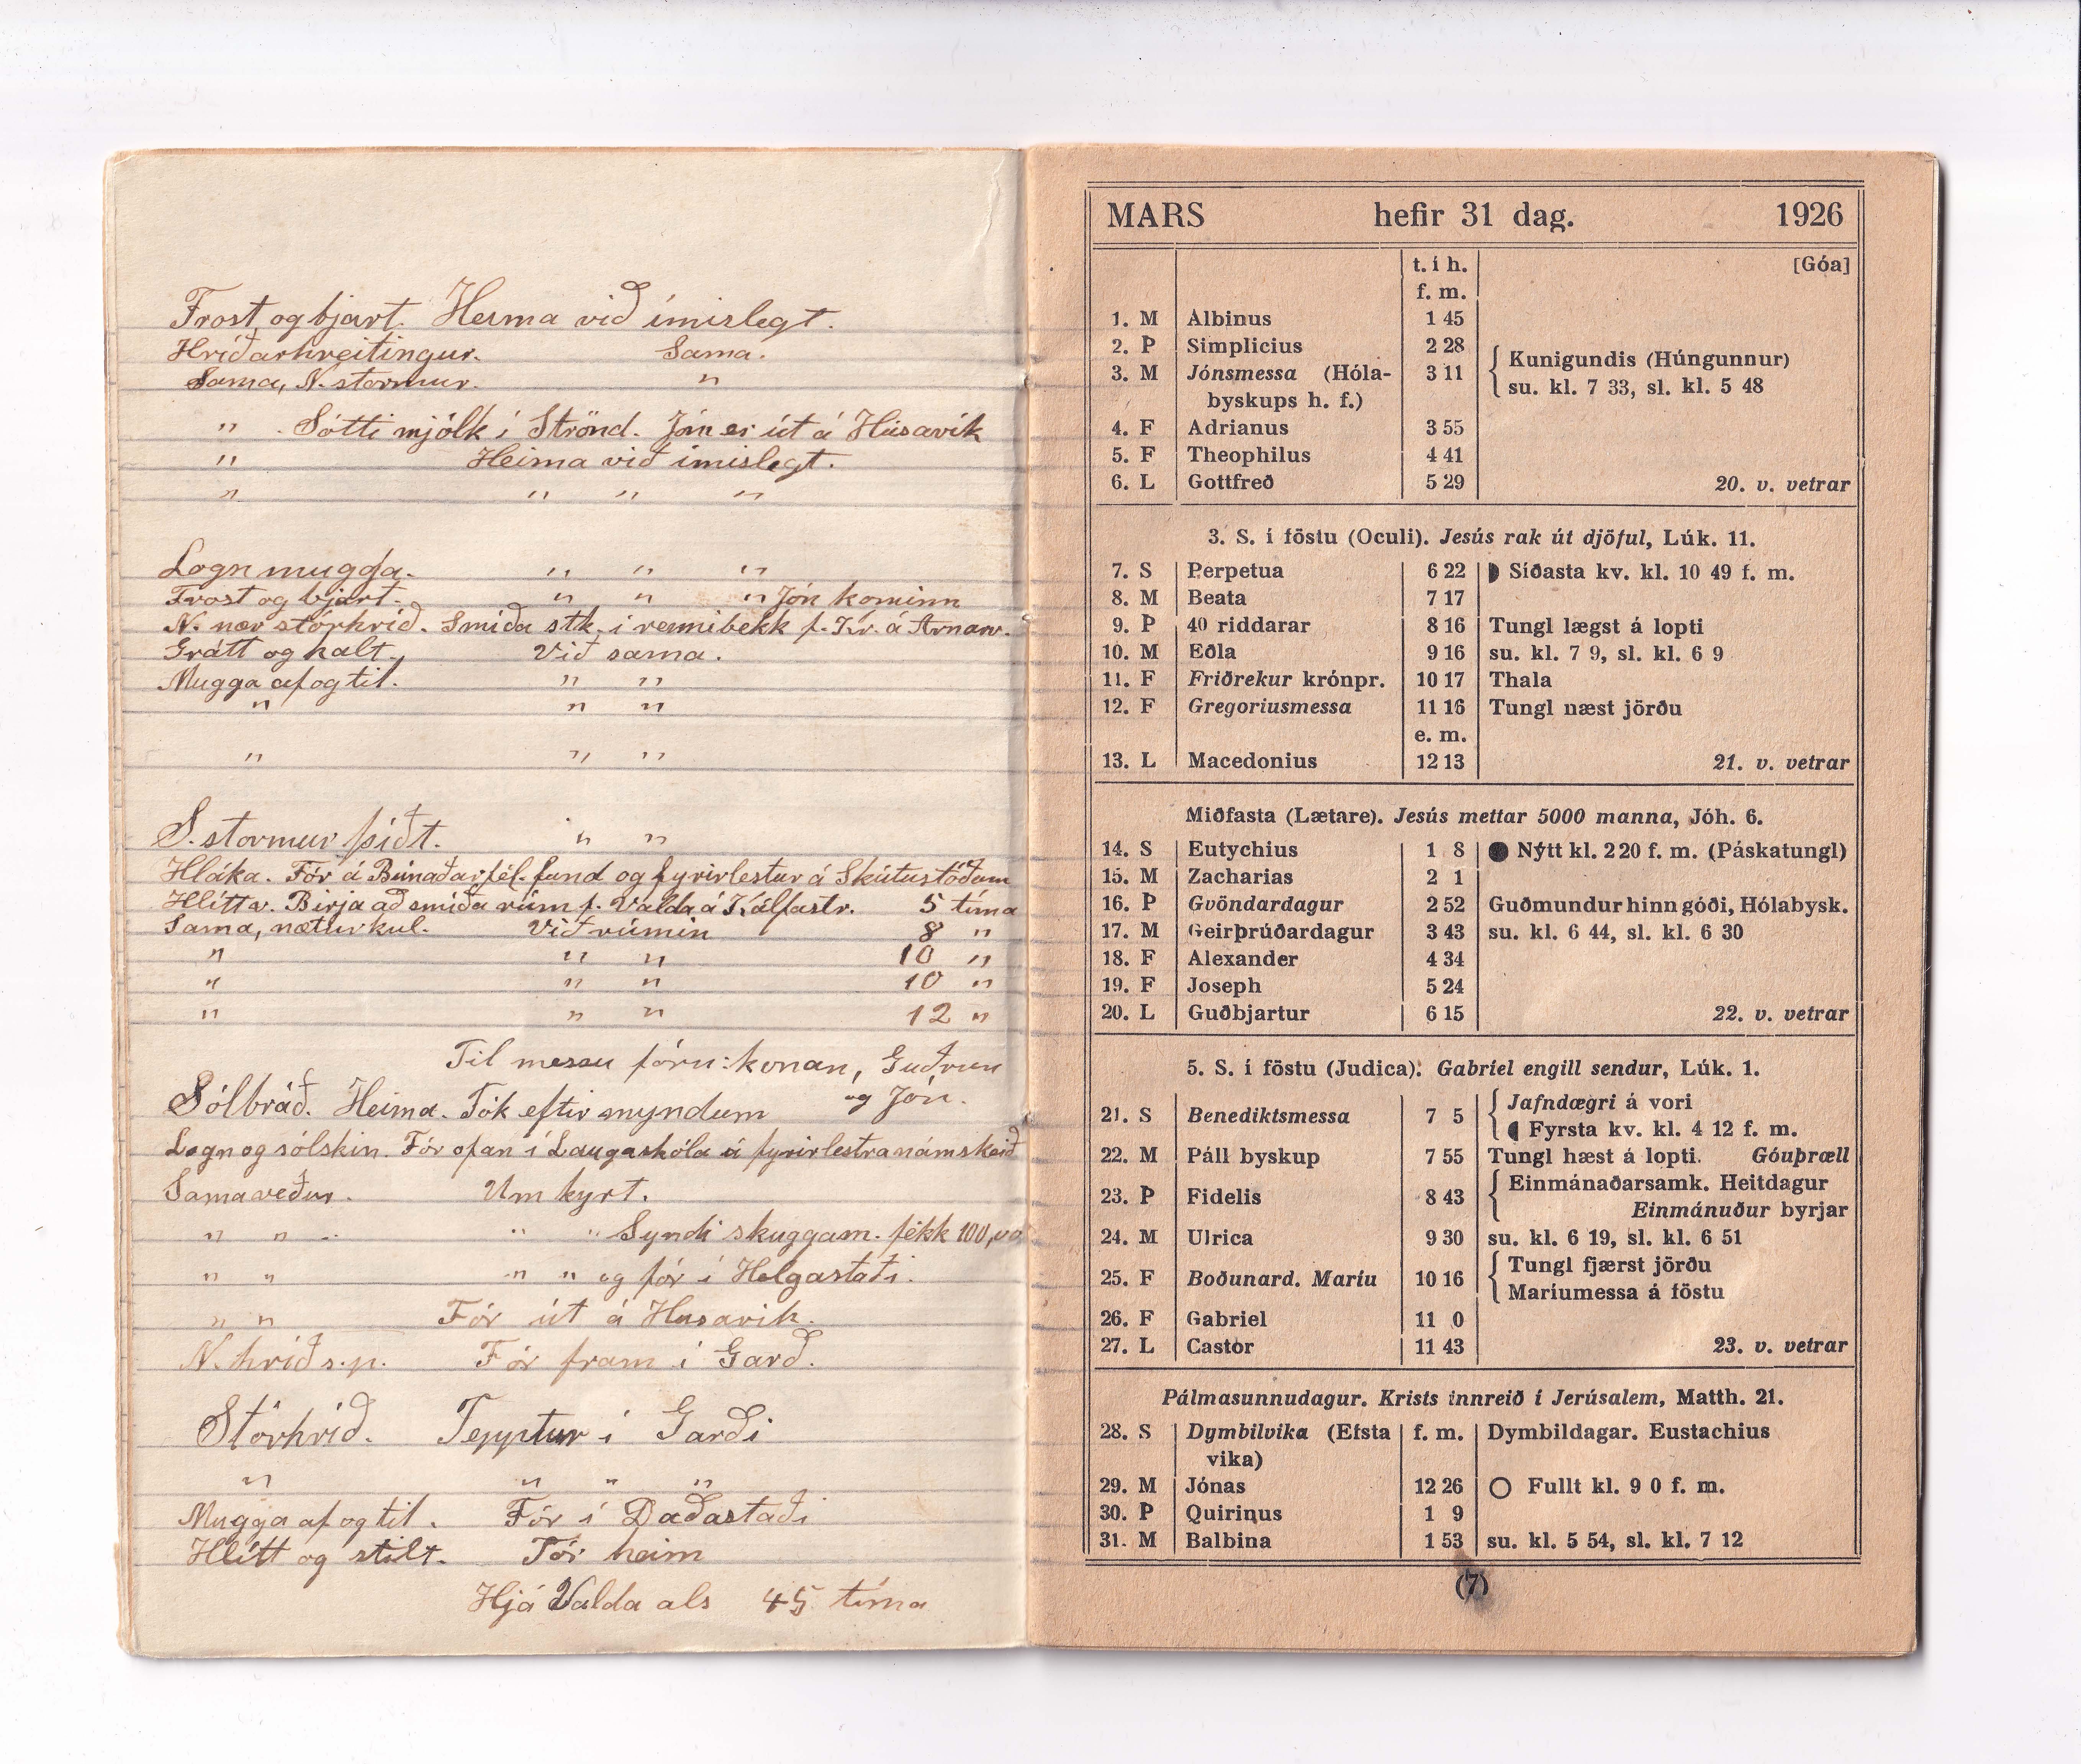 Frost og bjart. Heima við ímislegt.
Hríðarhreitingur. Sama.
Sama, N. stormur. "
" Sótti mjólk í Strönd. Jón er út á Húsavík
" Heima við ímislegt.
" " " "
Logn mugga. " " "
Frost og bjart. " " " Jón kominn
N. nær stórhríð. Smíða stk. í rennibekk f. Kr. á Arnarv.
Grátt og kalt. Við sama.
Mugga af og til. " "
" " "
" " "
S. stormur þíðt. " "
Hláka. Fór á Búnaðarfél. fund og fyrirlestur á Skútustöðum
Hlítt v. Birja að smíða rúm f. Valda á Kálfastr. 5 tíma
Sama, næturkul. Við rúmin 8 "
" " " 10 "
" " " 10 "
" " " 12 "
Til messu fóru: konan, Guðrun
og Jón.
Sólbráð. Heima. Tók eftir myndum
Logn og sólskin. Fór ofan í Laugaskóla á fyrirlestranámskeið
Sama veður. Um kyrt.
" " " " Syndi skuggam. fékk 100,00
" " " " og fór í Helgastaði.
" " Fór út á Husavik.
N. hríð s.p. Fór fram í Garð.
Stórhríð. Tepptur í Garði
" " " "
Mugga af og til. Fór í Daðastaði
Hlítt og stilt. Fór heim
Hjá Valda als 45 tíma
MARS hefir 31 dag. 1926
t. í h. [Góa]
f. m.
1. M Albinus 1 45
2. Þ Simplicius 2 28
3. M Jónsmessa (Hóla- 3 11 { Kunigundis (Húngunnur)
byskups h. f.) su. kl. 7 33, sl. kl. 5 48
4. F Adrianus 3 55
5. F Theophilus 4 41
6. L Gottfreð 5 29 20. v. vetrar
3. S. í föstu (Oculi). Jesús rak út djöful, Lúk. 11.
7. S Perpetua 6 22 Síðasta kv. kl. 10 49 f. m.
8. M Beata 7 17
9. Þ 40 riddarar 8 16 Tungl lægst á lopti
10. M Eðla 9 16 su. kl. 7 9, sl. kl. 6 9
11. F Friðrekur krónpr. 10 17 Thala
12. F Gregoriusmessa 11 16 Tungl næst jörðu
e. m.
13. L Macedonius 12 13 21. v. vetrar
Miðfasta (Lætare). Jesús mettar 5000 manna, Jóh. 6.
14. S Eutychius 1 8 Nýtt kl. 2 20 f. m. (Páskatungl)
15. M Zacharias 2 1
16. Þ Gvöndardagur 2 52 Guðmundur hinn góði, Hólabysk.
17. M Geirþrúðardagur 3 43 su. kl. 6 44, sl. kl. 6 30
18. F Alexander 4 34
19. F Joseph 5 24
20. L Guðbjartur 6 15 22. v. vetrar
5. S. í föstu (Judica). Gabríel engill sendur, Lúk. 1.
21. S Benediktsmessa 7 5 { Jafndægri á vori
Fyrsta kv. kl. 4 12 f. m.
22. M Páll byskup 7 55 Tungl hæst á lopti. Góuþræll
23. Þ Fidelis 8 43 { Einmánaðarsamk. Heitdagur
Einmánuður byrjar
24. M Ulrica 9 30 su. kl. 6 19, sl. kl. 6 51
25. F Boðunard. Maríu 10 16 { Tungl fjærst jörðu
Maríumessa á föstu
26. F Gabriel 11 0
27. L Castor 11 43 23. v. vetrar
Pálmasunnudagur. Krists innreið í Jerúsalem, Matth. 21.
28. S Dymbilvika (Efsta f. m. Dymbildagar. Eustachius
vika)
29. M Jónas 12 26 Fullt kl. 9 0 f. m.
30. Þ Quirinus 1 9
31. M Balbina 1 53 su. kl. 5 54, sl. kl. 7 12
(7)